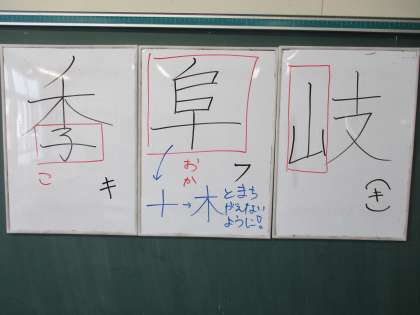 季
こ
キ
阜
おか
フ
十→木
とまち
がえない
ように!
岐
(キ)